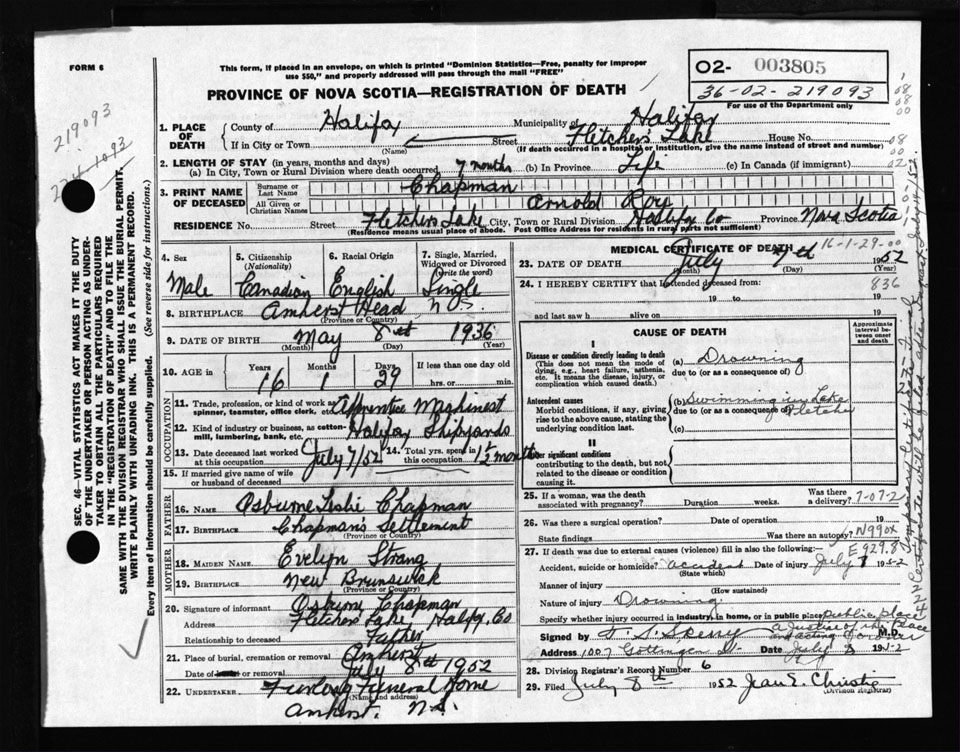 FORM 6
This form, if placed in an envelope, on which is printed "Dominion Statistics—Free, penalty for improper
use $50," and properly addressed will pass through the mail "FREE"
O2- 003805
36-02-219093
For use of the Department only
219093
PROVINCE OF NOVA SCOTIA—REGISTRATION OF DEATH
1. PLACE OF DEATH
County of Halifax Municipality of Halifax
If in City or Town (Name) Street Fletcher's Lake House No.
(If death occurred in a hospital or institution, give the name instead of street and number)
2. LENGTH OF STAY (in years, months and days)
(a) In City, Town or Rural Division where death occurred 7 months (b) In Province Life (c) In Canada (if immigrant)
3. PRINT NAME OF DECEASED
Surname or Last Name Chapman
All Given or Christian Names Arnold Roy
RESIDENCE No. Street Fletchers Lake City, Town or Rural Division Halifax Co Province Nova Scotia
(Residence means usual place of abode. Post Office Address for residents in rural parts not sufficient)
4. Sex Male
5. Citizenship (Nationality) Canadian
6. Racial Origin English
7. Single, Married, Widowed or Divorced (write the word) Single
8. BIRTHPLACE Amherst Head N.S.
(Province or Country)
9. DATE OF BIRTH May 8th 1936
(Month) (Day) (Year)
10. AGE in Years 16 Months 1 Days 29 If less than one day hrs. or min.
OCCUPATION
11. Trade, profession, or kind of work as spinner, teamster, office clerk, etc. Apprentice Machinest
12. Kind of industry or business, as cotton-mill, lumbering, bank, etc. Halifax Shipyards
13. Date deceased last worked at this occupation July 7/52
14. Total yrs. spent in this occupation 1½ months
15. If married give name of wife or husband of deceased
FATHER
16. Name Osburne Leslie Chapman
17. Birthplace Chapman's Settlement
(Province or Country)
MOTHER
18. Maiden Name Evelyn Strang
19. Birthplace New Brunswick
(Province or Country)
20. Signature of informant Osburne Chapman
Address Fletcher's Lake, Halifax Co
Relationship to deceased Father
21. Place of burial, cremation or removal Amherst
Date of burial or removal July 8th 1952
22. UNDERTAKER Furlong Funeral Home
(Name and address)
Amherst. N.S.
SEC. 46—VITAL STATISTICS ACT MAKES IT THE DUTY
OF THE UNDERTAKER OR PERSON ACTING AS UNDER-
TAKER TO OBTAIN ALL THE PARTICULARS REQUIRED
IN THE "REGISTRATION OF DEATH" AND TO FILE THE
SAME WITH THE DIVISION REGISTRAR WHO SHALL ISSUE THE BURIAL PERMIT.
WRITE PLAINLY WITH UNFADING INK. THIS IS A PERMANENT RECORD.
Every item of information should be carefully supplied. (See reverse side for instructions.)
MEDICAL CERTIFICATE OF DEATH
16-1-29-00
23. DATE OF DEATH July 7th 1952
(Month) (Day) (Year)
836
24. I HEREBY CERTIFY that I attended deceased from:
19 to 19
and last saw h alive on 19
CAUSE OF DEATH
Approximate interval between onset and death
I
Disease or condition directly leading to death
(This does not mean the mode of dying, e.g., heart failure, asthenia, etc. It means the disease, injury, or complication which caused death.)
(a) Drowning
due to (or as a consequence of)
Antecedent causes
Morbid conditions, if any, giving rise to the above cause, stating the underlying condition last.
(b) Swimming in Lake Fletcher
due to (or as a consequence of)
(c)
II
Other significant conditions
contributing to the death, but not related to the disease or condition causing it.
25. If a woman, was the death associated with pregnancy? Duration weeks. Was there a delivery? 7-07-2
26. Was there a surgical operation? Date of operation 19
State findings Was there an autopsy? N990X
27. If death was due to external causes (violence) fill in also the following: E929.8
Accident, suicide or homicide? accident Date of injury July 7 1952
(State which)
Manner of injury
(How sustained)
Nature of injury Drowning
Specify whether injury occurred in industry, in home, or in public place public place
a Justice of the Peace
and acting Coroner
Signed by M.D.
Address 1007 Gottingen St. Date July 8 1952
28. Division Registrar's Record Number 6
29. Filed July 8th 1952 Jean E. Christie
(Division Registrar)